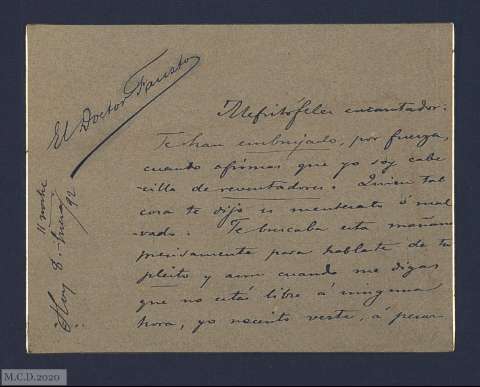 El Doctor Fausto
11 noche
Hoy 8. Enero/92
Mefistofeles encantador:
Te han embrujado, por fuerza,
cuando afirmas que yo soy cabe
cilla de reventadores. Quien tal
cosa te dijo es mentecato ó mal
vado. Te buscaba esta mañana
precisamente para hablarte de tu
pleito y aun cuando me digas
que no estás libre á ninguna
hora, yo necesito verte, á pesar
M.C.D.2020